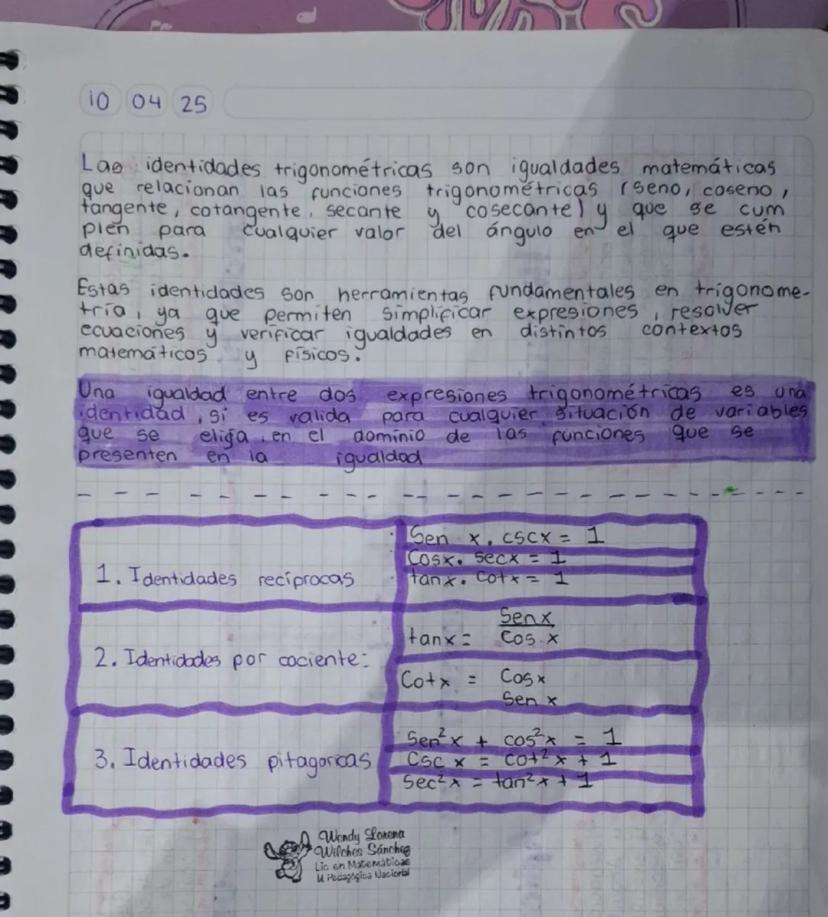 10 04 25
Las identidades trigonométricas son igualdades matemáticas
que relacionan las funciones trigonométricas (seno, coseno,
tangente, cotangente, secante y cosecante) y que se cum
plen para cualquier valor del ángulo en el que estén
definidas.
Estas identidades son herramientas fundamentales en trigonome-
tría, ya que permiten simplificar expresiones, resolver
ecuaciones y verificar igualdades en distintos contextos
matemáticos y físicos.
Una igualdad entre dos expresiones trigonométricas es una
identidad, si es valida para cualquier situación de variables
que se elija en el dominio de las funciones que se
presenten en la igualdad
1. Identidades recíprocas
Sen x . csc x = 1
Cosx. secx = 1
tanx. Cotx = 1
2. Identidades por cociente:
tanx = Senx
Cos x
Cotx = Cosx
Sen x
3. Identidades pitagoricas
Sen²x + cos²x = 1
Csc x = cot²x + 1
Sec²x = tan²x + 1
Wendy Lorena
Wilches Sánchez
Lic en Matemáticas
U Pedagógica Nacional